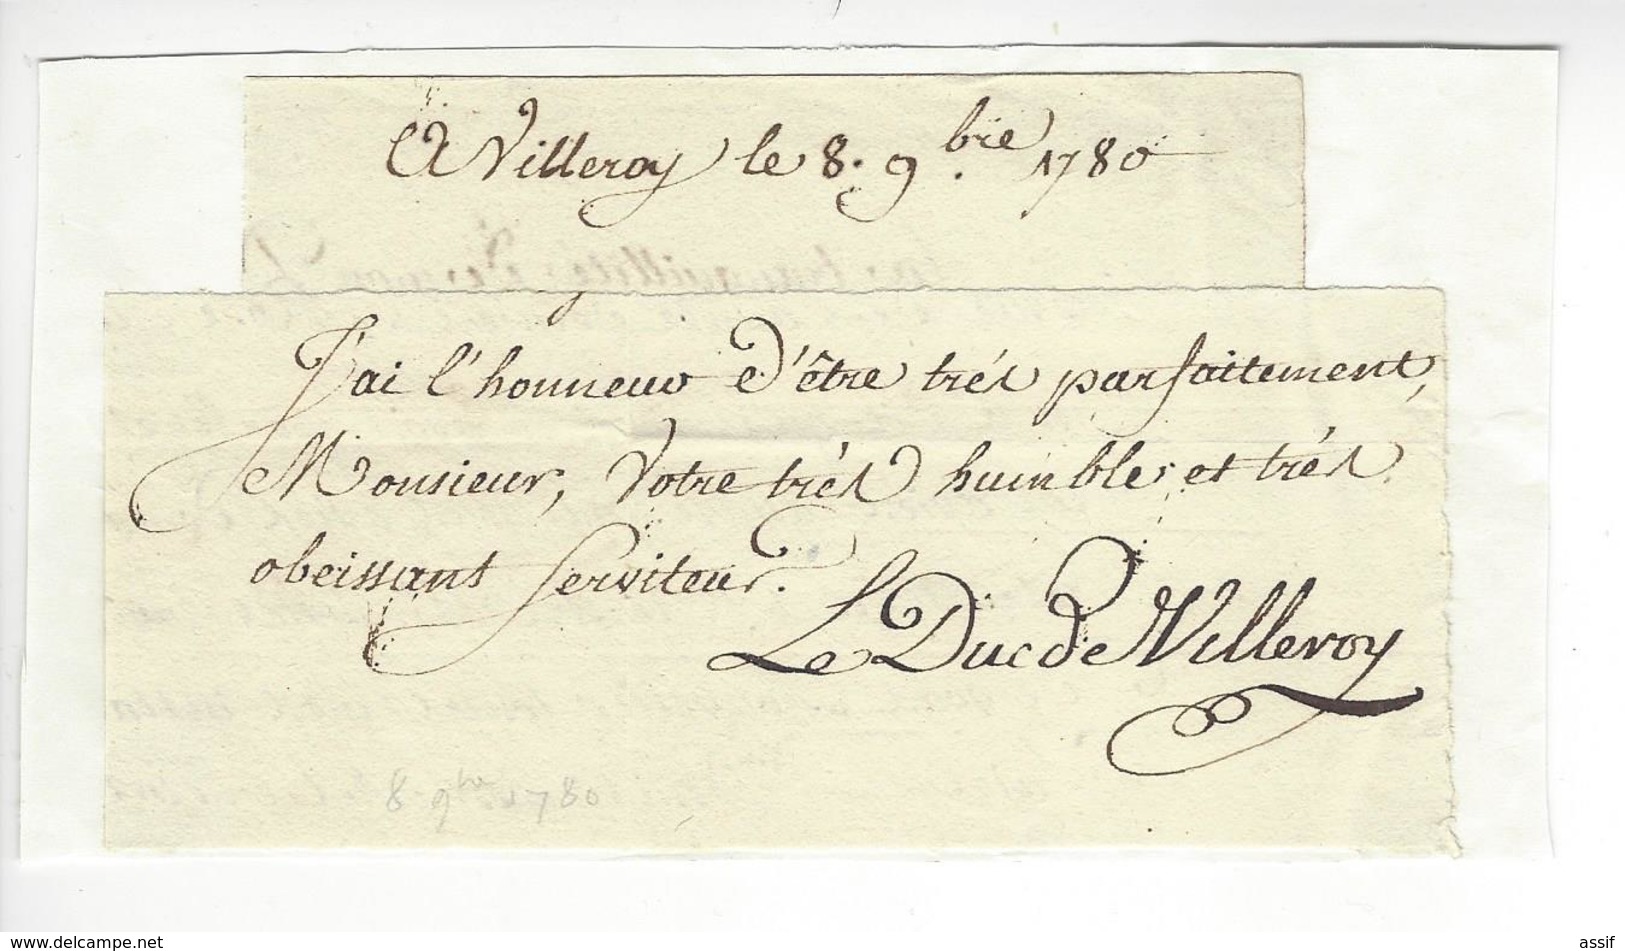 A Villeroy le 8. 9.bre 1780
J'ai l'honneur d'être trés parfaitement,
Monsieur, Votre trés humble et trés
obeissant Serviteur.
Le Duc de Villeroy
8 9bre 1780
www.delcampe.net
assif